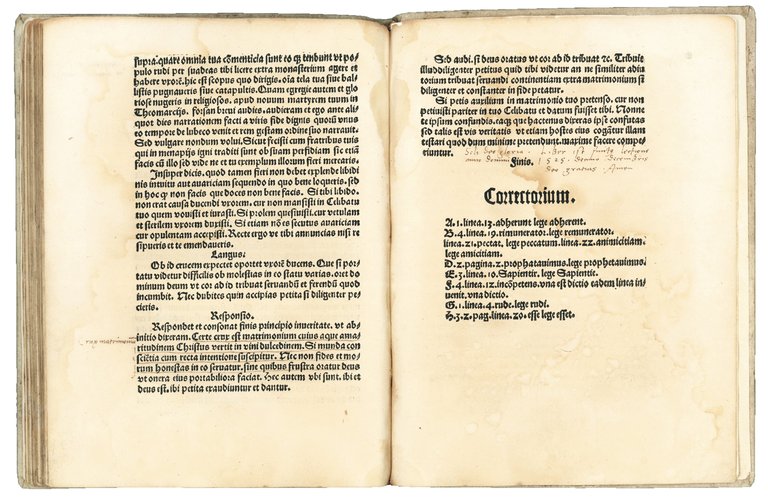 supra. quare omnia tua cõmenticia sunt eo qʒ tendunt vt po-
pulo rudi per suadeas tibi licere extra monasterium agere et
habere vxorẽ. hic est scopus quo dirigis. oĩa tela tua siue bal-
listis pugnaueris siue catapultis. Quam egregie autem et glo
riose nugeris in religiosos. apud nouum martyrem tuum in
Theomarcijs. forsan breui audies. audieram et ego ante ali-
quot dies narrationem facti a viris fide dignis quorũ vnus
eo tempore de lubeco venit et rem gestam ordine suo narrauit.
Sed vulgare nondum volui. Sicut fecisti cum fratribus tuis
qui in menapijs igni traditi sunt ob suam perfidiam sec etiã
facis cũ illo sed vide ne et tu exemplum illorum fieri merearis.
Insuper dicis. quod tamen fieri non debet explende libidi
nis intuitu aut auariciam sequendo in quo bene loqueris. sed
in hoc qʒ non facis que doces non bene facis. Si tibi libido.
non erat causa ducendi vxorem. cur non mansisti in Celibatu
tuo quem vouisti et iurasti. Si prolem quesiuisti. cur vetulam
et sterilem vxorem duxisti. Si etiam nõ es secutus auariciam
cur opulentam accepisti. Recte ergo ve tibi annuncias nisi re
sipueris et te emendaueris.
Langus.
Ob id crucem expectet oportet vxorẽ ducens. Que si por
tatu videtur difficilis ob molestias in eo statu varias. oret do
minum deum vt cor ad id tribuat seruandũ et ferendũ quod
incumbit. Nec dubites quin accipias petita si diligenter pe-
cieris.
Responsio.
Respondet et consonat finis principio inueritate. vt ab-
initio dixeram. Certe crux est matrimonium cuius aque ama-
ritudinem Christus vertit in vini dulcedinem. Si munda con
sciẽtia cum recta intentione suscipitur. Nec non fides et mo-
rum honestas in eo seruatur. sine quibus frustra oratur deus
vt onera eius portabiliora faciat. Hec autem vbi sunt. ibi et
deus est. ibi petita exaudiuntur et dantur.
crux matrimonium
Sed audi. si deus oratus vt cor ab id tribuat ⁊c. Tribuit
illud diligenter petitus quid tibi videtur an ne similiter adiu
torium tribuat seruandi continentiam extra matrimonium si
diligenter et constanter in fide petatur.
Si petis auxilium in matrimonio tuo pretenso. cur non
petiuisti pariter in tuo Celibatu et datum fuisset tibi. Nonne
te ipsum confundis. eaqʒ que hactenus dixeras ipse confutas
sed talis est vis veritatis vt etiam hostes eius cogãtur illam
testari quod dum minime pretendunt. maxime facere compe
riuntur.
Finis.
1525
deo gratias. Amen
Correctorium.
A. 1. linea. 13. adherunt lege adherent.
B. 4. linea. 19. rimunerator. lege remunerator.
linea. 21. pectat. lege peccatum. linea. 22. animicitiam.
lege amicitiam.
D. 2. pagina. 2. prophatauimus. lege prophetauimus.
E. 3. linea. 10. Sapientir. lege Sapientie.
F. 4. linea. 12. incõpetens. vna est dictio eadem linea in-
uenit. vna dictio.
G. 1. linea. 4. rude. lege rudi.
H. 3. 2. pag. linea. 20. esse lege esset.